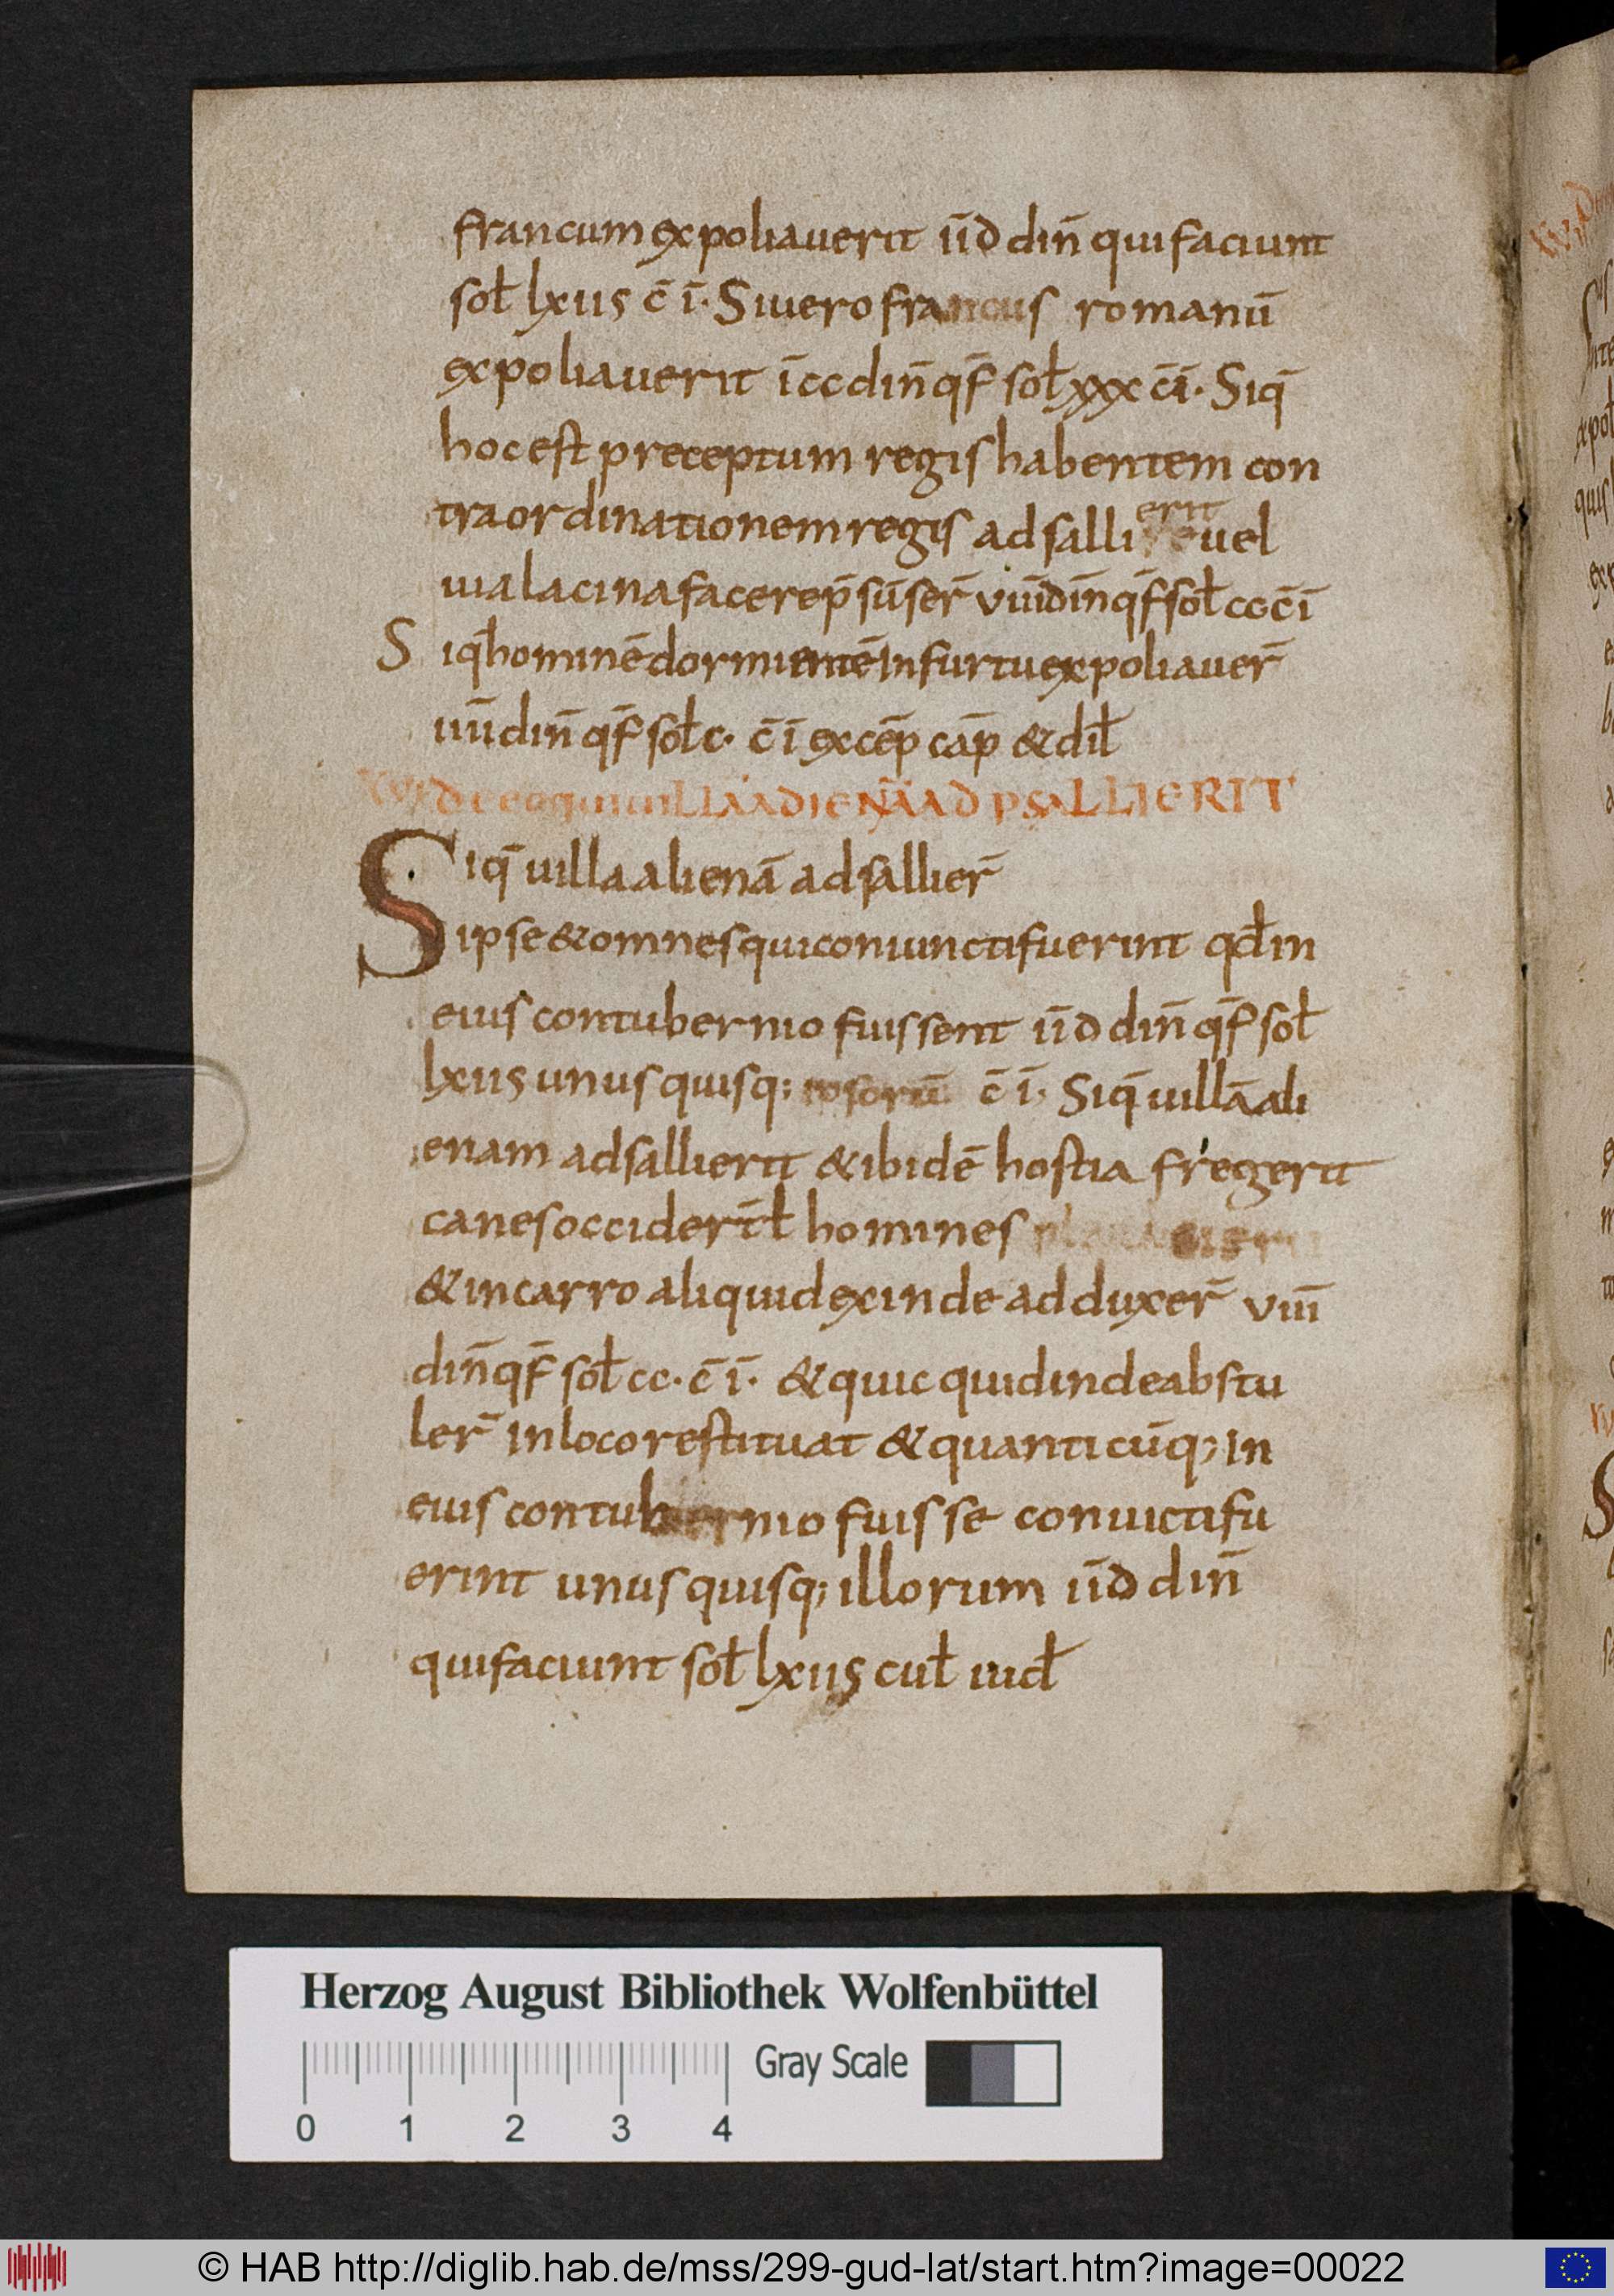 francum expoliauerit īīd din̄ qui faciunt
soł lxiis c̄ ī· Si uero francus romanū
expoliauerit ī cc din̄ qf̄ soł xxx c̄ ī· Siq̄
hoc est preceptum regis habentem con
tra ordinationem regis adsalli erit uel
uialacina facere p̄sūser̄ viiīdin̄ qf̄ soł cc c̄ ī
S iq̄ hominē dormientē in furtu expoliauer̄
iiīi din̄ qf̄ soł c· c̄ ī excep̄ cap̄ & dił
XVI de eo qui uillā adienā adpsALLIERIT
Siq̄ uilla alienā adsallier̄
ipse & omnes qui coniuncti fuerint qđ in
eius contubernio fuissent īīd din̄ qf̄ soł
lxiis unus quisq; c̄ ī· Siq̄ uillā ali
enam adsallierit & ibidē hostia fregerit
canes occiderīt ł homines
& in carro aliquid exinde adduxer̄ viiī
din̄ qf̄ soł cc· c̄ ī· & quic quid inde abstu
ler̄ in loco restituat & quanticūq; in
eius contubernio fuisse conuicti fu
erint unus quisq; illorum īīd din̄
qui faciunt soł lxiis cuł iuđ
Herzog August Bibliothek Wolfenbüttel
Gray Scale
0 1 2 3 4
© HAB http://diglib.hab.de/mss/299-gud-lat/start.htm?image=00022